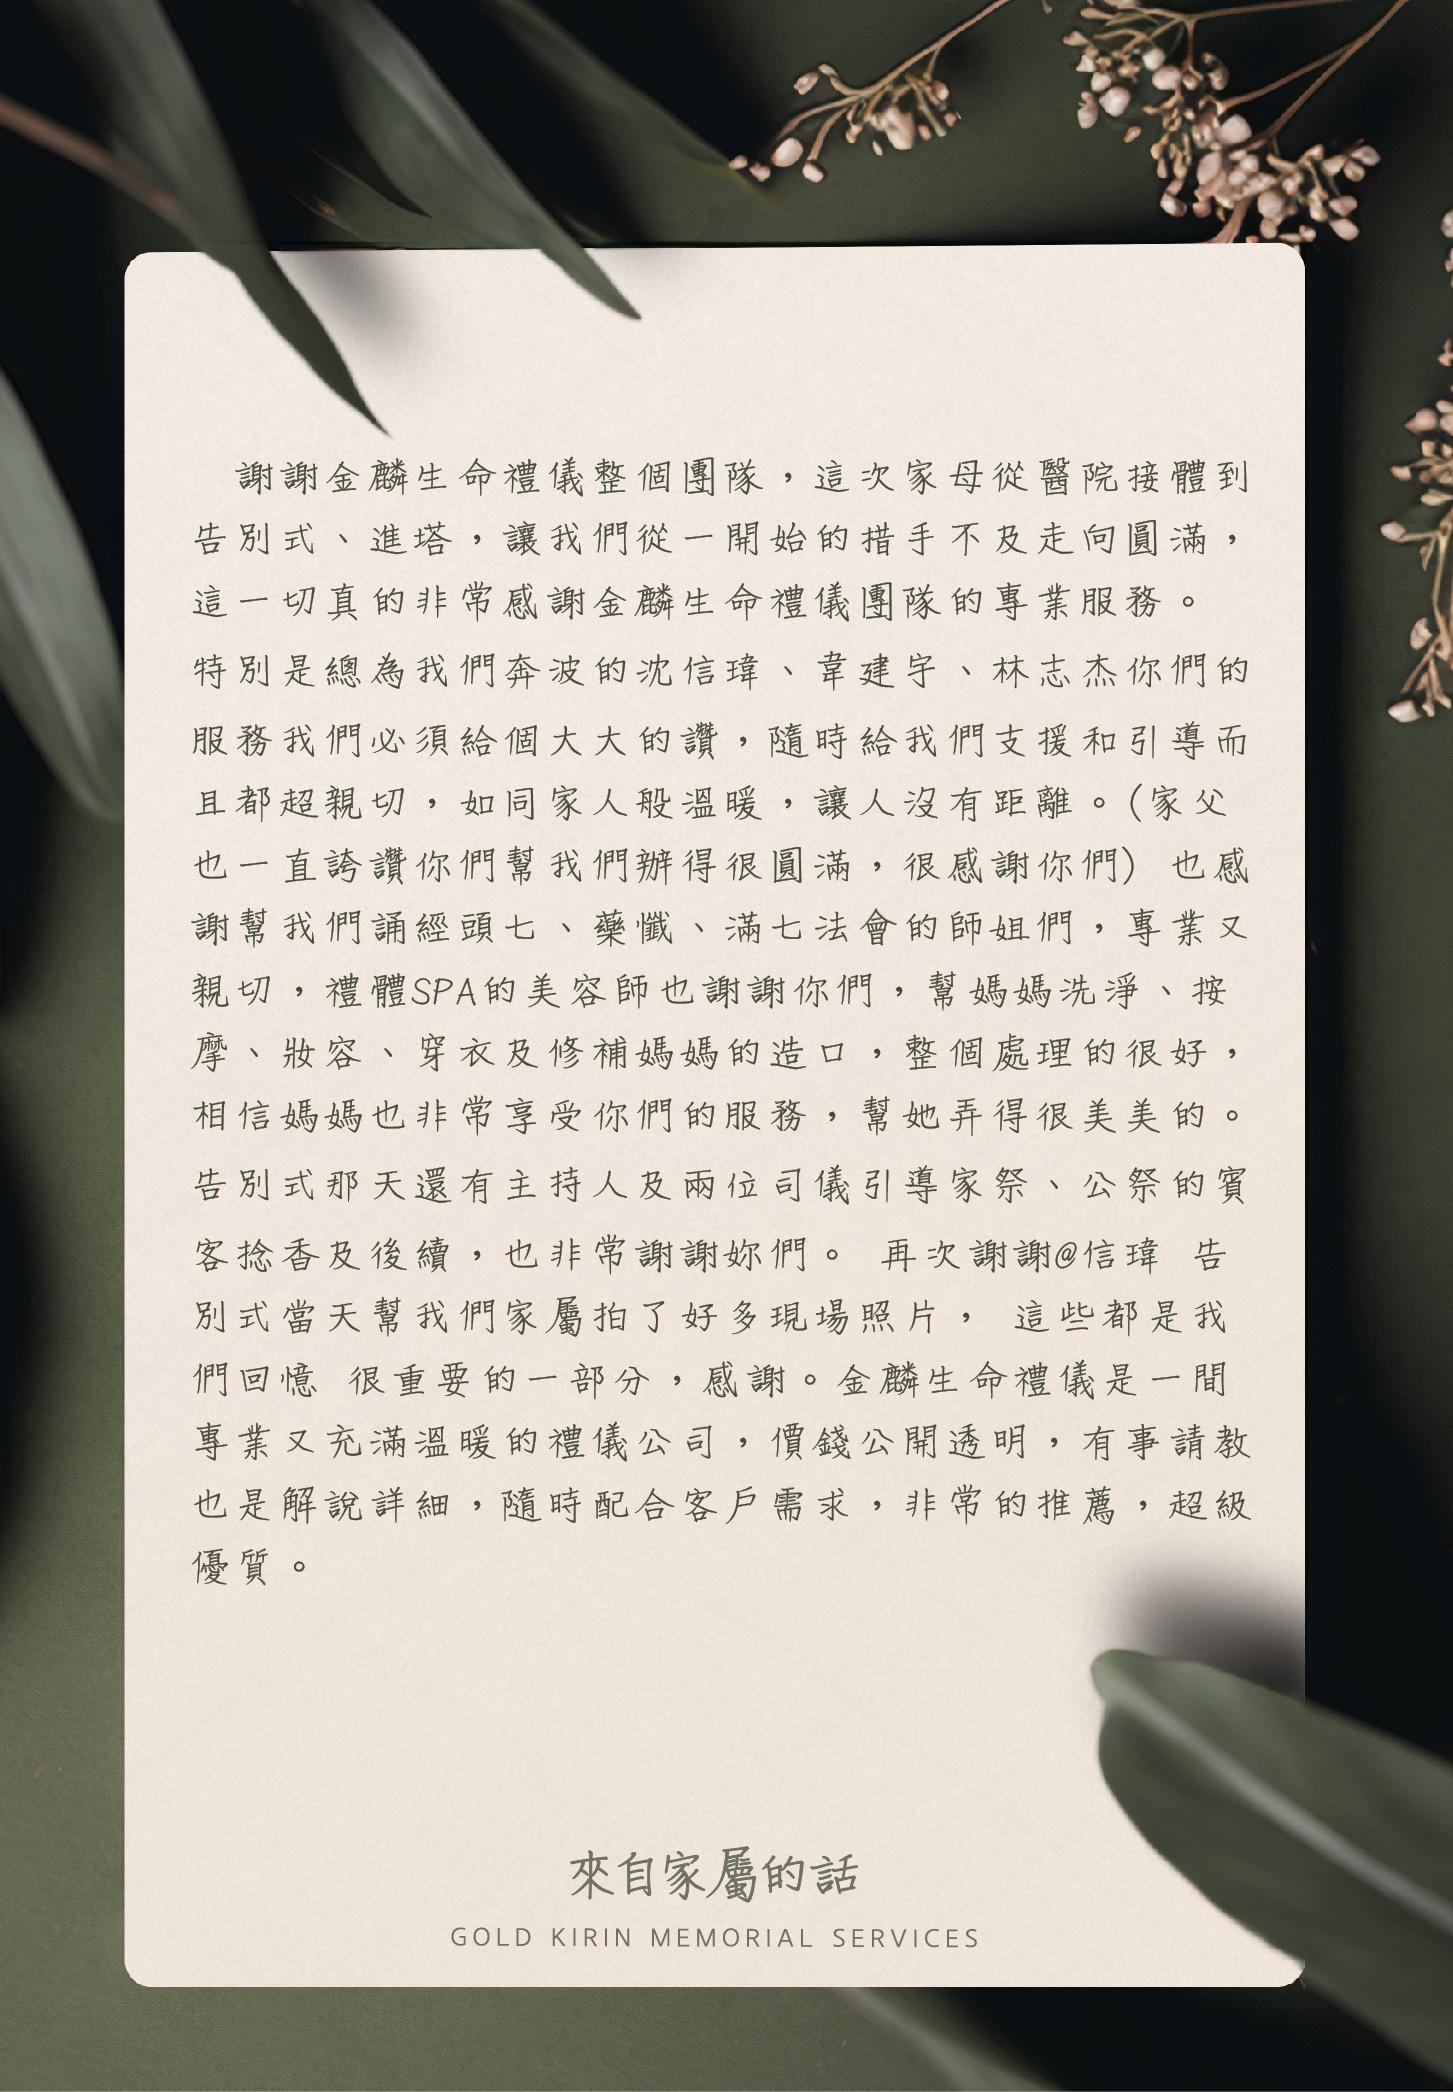 謝謝金麟生命禮儀整個團隊，這次家母從醫院接體到
告別式、進塔，讓我們從一開始的措手不及走向圓滿，
這一切真的非常感謝金麟生命禮儀團隊的專業服務。
特別是總為我們奔波的沈信瑋、韋建宇、林志杰你們的
服務我們必須給個大大的讚，隨時給我們支援和引導而
且都超親切，如同家人般溫暖，讓人沒有距離。(家父
也一直誇讚你們幫我們辦得很圓滿，很感謝你們) 也感
謝幫我們誦經頭七、藥懺、滿七法會的師姐們，專業又
親切，禮體SPA的美容師也謝謝你們，幫媽媽洗淨、按
摩、妝容、穿衣及修補媽媽的造口，整個處理的很好，
相信媽媽也非常享受你們的服務，幫她弄得很美美的。
告別式那天還有主持人及兩位司儀引導家祭、公祭的賓
客捻香及後續，也非常謝謝妳們。 再次謝謝@信瑋 告
別式當天幫我們家屬拍了好多現場照片， 這些都是我
們回憶 很重要的一部分，感謝。金麟生命禮儀是一間
專業又充滿溫暖的禮儀公司，價錢公開透明，有事請教
也是解說詳細，隨時配合客戶需求，非常的推薦，超級
優質。
來自家屬的話
GOLD KIRIN MEMORIAL SERVICES